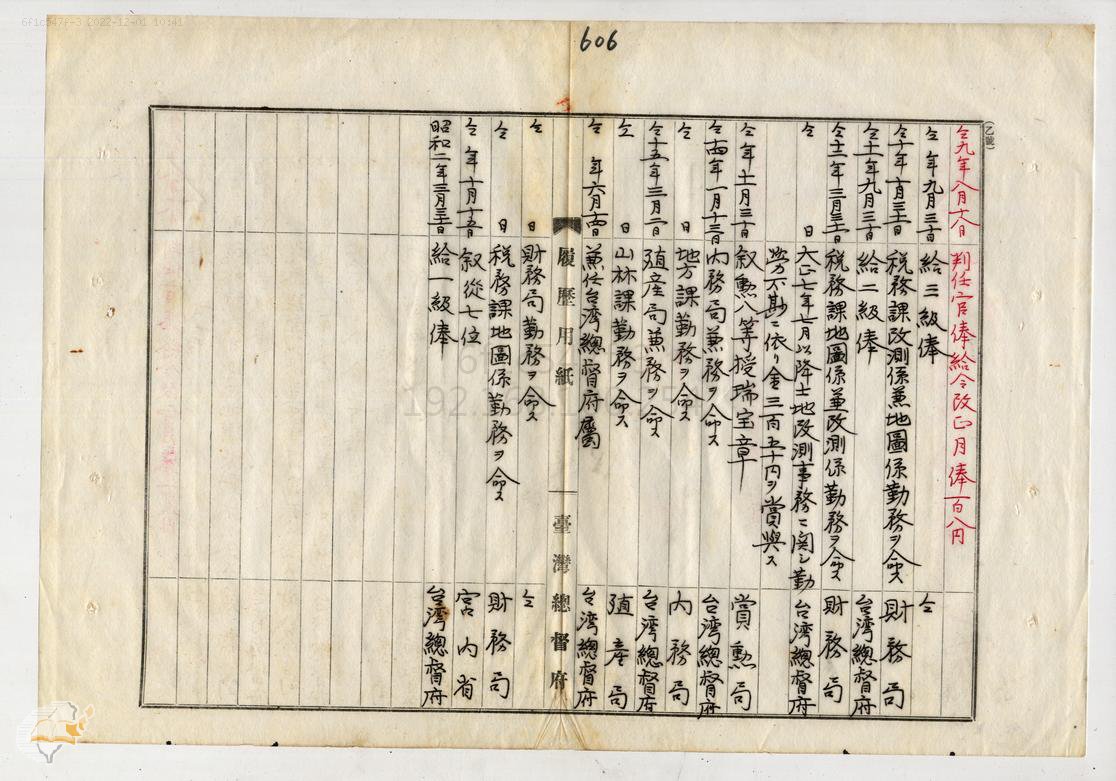 6f1c547f-3 2022-12-01 10:41
606
(乙號)
仝九年八月十八日 判任官俸給令改正月俸百八円
仝 年九月三十日 給三級俸 仝
仝十年十月三十一日 税務課改測係兼地圖係勤務ヲ命ス 財務局
仝十一年九月三十日 給二級俸 台湾總督府
仝十二年三月三十一日 税務課地圖係兼改測係勤務ヲ命ス 財務局
仝 日 大正七年七月以降土地改測事務ニ関シ勤 台湾總督府
労不尠ニ依リ金三百五十円ヲ賞與ス
仝 年十一月三十日 叙勲八等授瑞宝章 賞勲局
仝十四年一月十三日 内務局兼務ヲ命ス 台湾總督府
仝 日 地方課勤務ヲ命ス 内務局
仝十五年三月二日 殖産局兼務ヲ命ス 台湾總督府
仝 日 山林課勤務ヲ命ス 殖産局
仝 年六月十四日 兼任台湾總督府属 台湾總督府
履歴用紙 臺灣總督府
仝 日 財務局勤務ヲ命ス 仝
仝 日 税務課地圖係勤務ヲ命ス 財務局
仝 年十月十五日 叙從七位 宮内省
昭和二年三月三十一日 給一級俸 台湾總督府